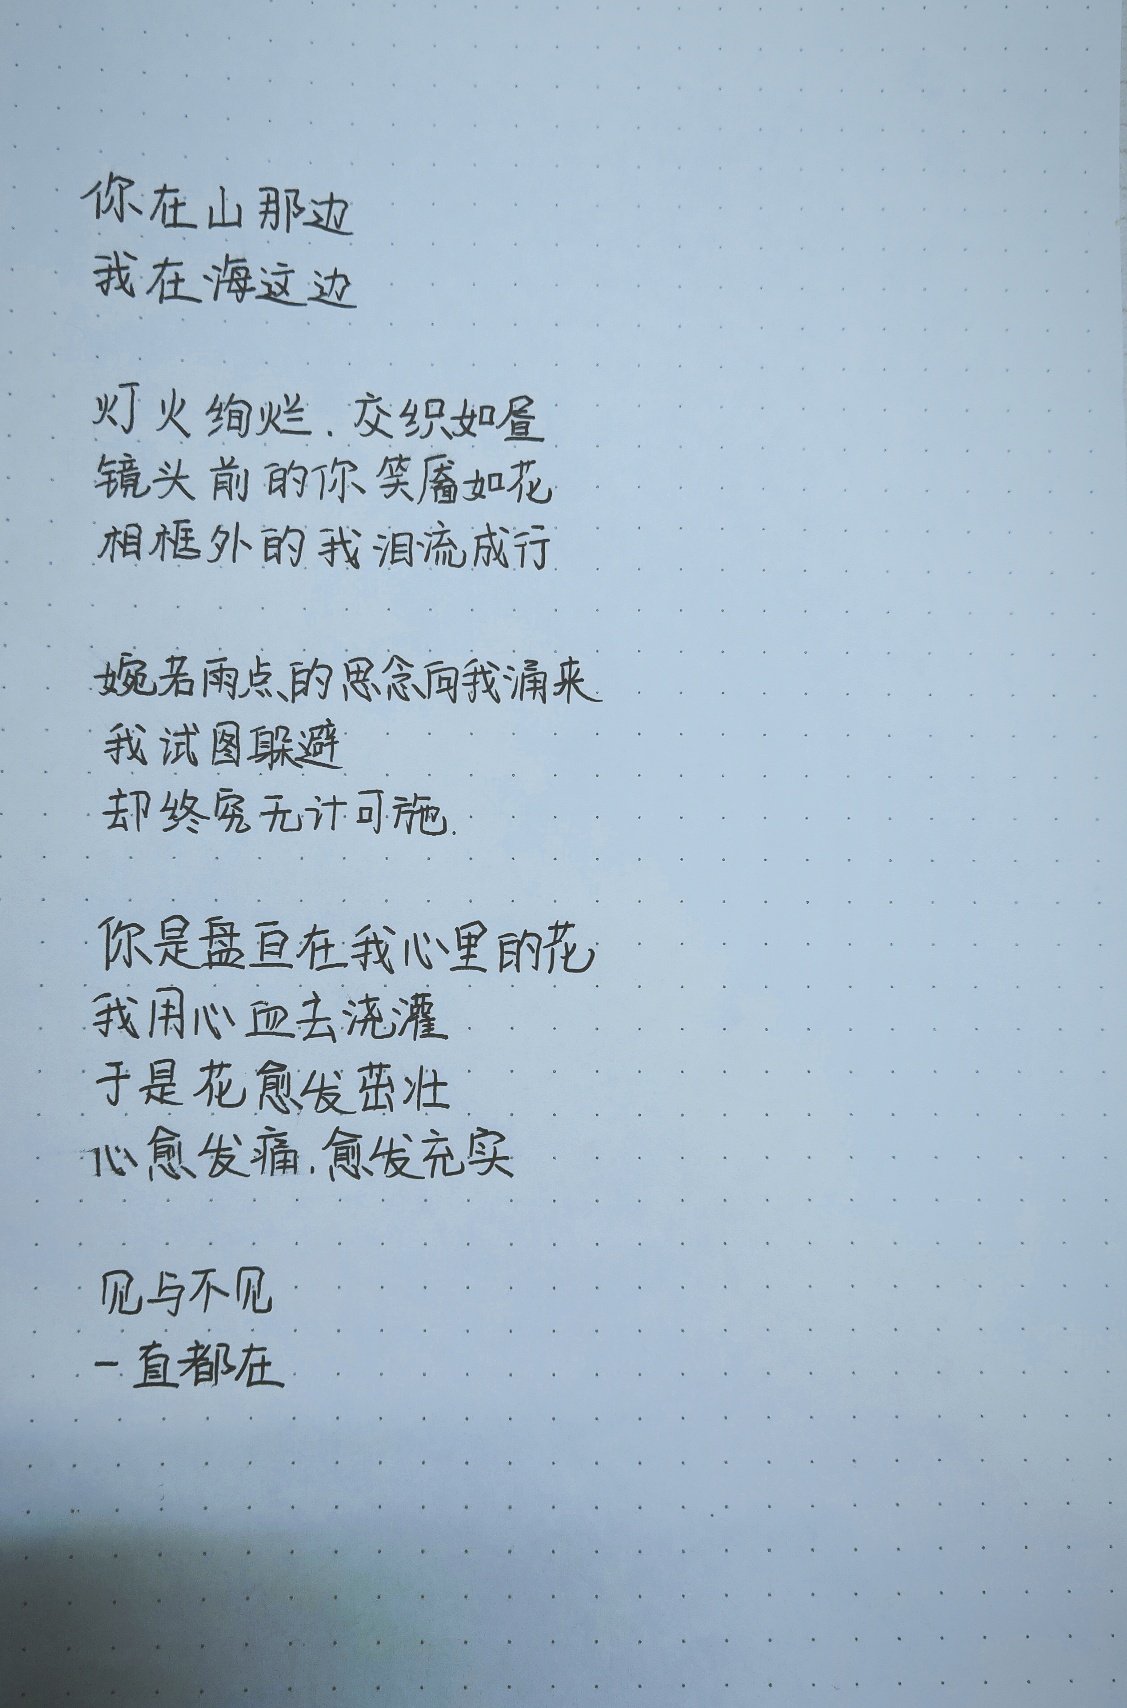 你在山那边
我在海这边
灯火绚烂.交织如昼
镜头前的你笑靥如花
相框外的我泪流成行
婉若雨点的思念向我涌来
我试图躲避
却终究无计可施.
你是盘亘在我心里的花
我用心血去浇灌
于是花愈发茁壮
心愈发痛.愈发充实
见与不见
一直都在